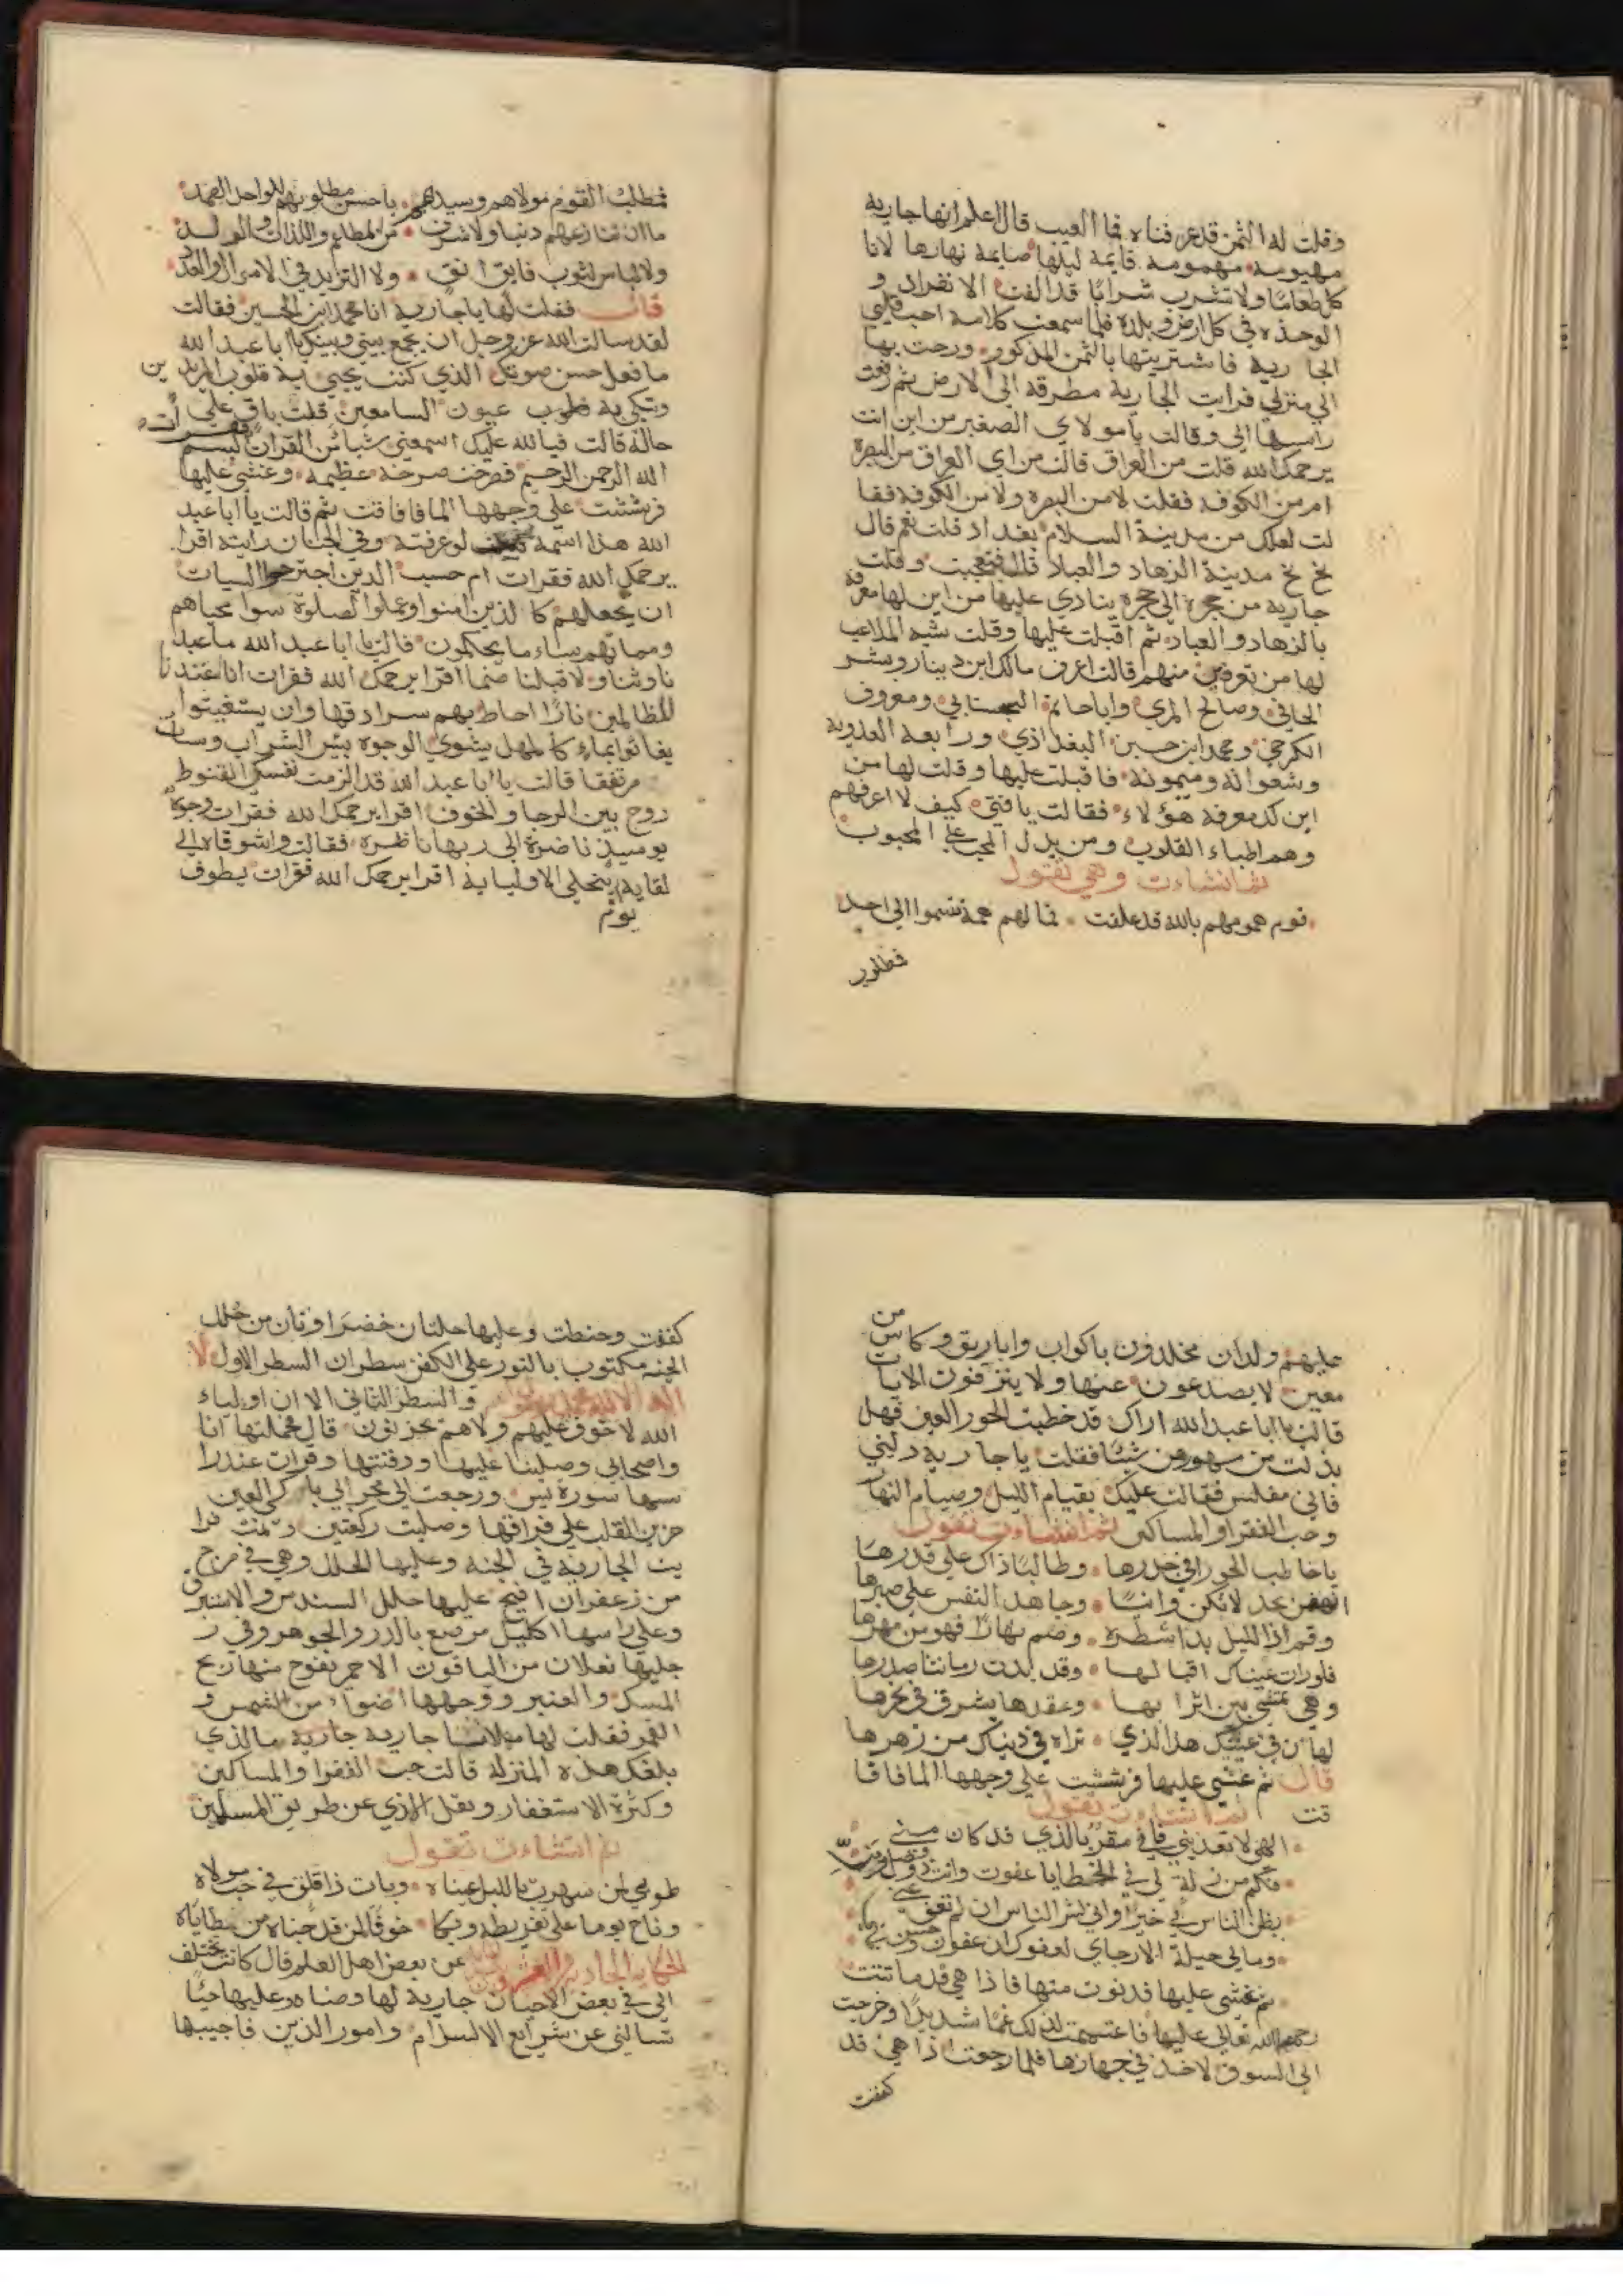 وقلت له الثمن قد عرفناه فما العيب قال اعلم انها جارية
مهيومه مهمومه قايمة ليلها صايمة نهارها لا تا
كل طعاما ولا تشرب شرابا قد الفت الانفراد و
الوحده في كل ارض وبلدة فلما سمعت كلامه احب قلبي
الجارية فاشتريتها بالثمن المذكور ورحت بها
الي منزلي فرايت الجارية مطرقه الي الارض ثم رفعت
راسها الي وقالت يا مولاي الصغير من اين انت
يرحمك الله قلت من العراق قالت من اي العراق من البصرة
ام من الكوفه فقلت لا من البصره ولا من الكوفه فقا
لت لعلك من مدينة السلام بغداد قلت نعم قال
بخ بخ مدينة الزهاد والعباد قال فتعجبت وقلت
جارية من حجرة الي حجرة ينادي عليها من اين لها معرفة
بالزهاد والعباد ثم اقبلت عليها وقلت شبه الملاعب
لها من تعرفين منهم قالت اعرف مالك ابن دينار وبشر
الحافي وصالح المري وابا حاتم السجستاني ومعروف
الكرخي ومحمد ابن حسين البغداذي ورابعة العدوية
وشعوانه وميمونه فاقبلت عليها وقلت لها من
اين لك معرفة هؤلاء فقالت يا فتي كيف لا اعرفهم
وهم اطباء القلوب ومن يدل المحب علي المحبوب
ثم انشاءت وهي تقول
قوم همومهم بالله قد علقت فما لهم همة تسموا الي احد
فطلب القوم مولاهم وسيدهم يا حسن مطلوبهم للواحد الصمد
ما ان تنازعهم دنيا ولا شرف من المطاعم واللذات والولد
ولا لباس لثوب فايق انق ولا التزايد في الاموال والعدد
قال فقلت لها يا جارية انا محمد ابن الحسين فقالت
لقد سالت الله عز وجل ان يجمع بيني وبينك يا ابا عبد الله
ما فعل حسن صوتك الذي كنت تحيي به قلوب المريدين
وتبكي به عيون السامعين قلت باق علي
حاله قالت فبالله عليك اسمعني شيا من القران فقرات بسم
الله الرحمن الرحيم فصرخت صرخة عظيمه وغشي عليها
فرششت علي وجهها الما فافاقت ثم قالت يا ابا عبد
الله هذا اسمه كيف لو عرفته وفي الجنان رايته اقرا
يرحمك الله فقرات ام حسب الذين اجترحوا السيات
ان نجعلهم كالذين امنوا وعملوا الصلوة سوا محياهم
ومماتهم ساء ما يحكمون قالت يا ابا عبد الله ما عبد
نا وثنا ولا قبلنا صنما اقرا يرحمك الله فقرات انا اعتدنا
للظالمين نارا احاط بهم سرادقها وان يستغيثوا
يغاثوا بماء كالمهل يشوي الوجوه بئس الشراب وسات
مرتفقا قالت يا ابا عبد الله قد الزمت نفسك القنوط
روح بين الرجا والخوف اقرا يرحمك الله فقرات وجوه
يوميذ ناضرة الي ربها ناظرة فقالت واشوقاه الي
لقايه يتجلي الاوليايه اقرا يرحمك الله فقرات يطوف
عليهم ولدان مخلدون باكواب واباريق وكاس من
معين لا يصدعون عنها ولا ينزفون الايات
قالت يا ابا عبد الله اراك قد خطبت الحور العين فهل
بذلت من مهورهن شيئا فقلت يا جارية دليني
فاني مفلس فقالت عليك بقيام الليل وصيام النهار
وحب الفقرا والمساكين ثم انشاءت تقول
يا خاطب الحور في خدرها وطالبا ذاك علي قدرها
انهض بجد لا تكن وانيا وجاهد النفس علي صبرها
وقم اذا الليل بدا شطره وصم نهارا فهو من مهرها
فلو رات عيناك اقبالها وقد بدت رمانتا صدرها
وهي تمشي بين اترابها وعقدها يشرق في نحرها
لهان في عينك هذا الذي تراه في دنياك من زهرها
قال ثم غشي عليها فرششت علي وجهها الما فافا
قت ثم انشاءت تقول
الهي لا تعذبني فاني مقر بالذي قد كان مني
فكم من زلة لي في الخطايا عفوت وانت ذو فضل ومن
يظن الناس بي خيرا واني لشر الناس ان لم تعف عني
ومالي حيلة الا رجاي لعفوك ان عفوت وحسن ظني
ثم غشي عليها فدنوت منها فاذا هي قد ماتت
رحمة الله تعالي عليها فاغتممت لذلك غما شديدا وخرجت
الي السوق لاخذ في جهازها فلما رجعت اذا هي قد
كفنت
كفنت وحنطت وعليها حلتان خضراوتان من حلل
الجنه مكتوب بالنور علي الكفن سطران السطر الاول لا
اله الا الله محمد رسول الله والسطر الثاني الا ان اولياء
الله لا خوف عليهم ولا هم يحزنون قال فحملتها انا
واصحابي وصلينا عليها ودفنتها وقرات عند را
سها سورة يس ورجعت الي محرابي باكي العين
حزين القلب علي فراقها وصليت ركعتين ونمت فرا
يت الجارية في الجنه وعليها الحلل وهي في مرج
من زعفران افيح عليها حلل السندس والاستبرق
وعلي راسها اكليل مرصع بالدر والجوهر وفي ر
جليها نعلان من الياقوت الاحمر يفوح منها ريح
المسك والعنبر ووجهها اضوا من الشمس و
القمر فقلت لها مهلا يا جارية جارية ما الذي
بلغك هذه المنزلة قالت حب الفقرا والمساكين
وكثرة الاستغفار ونقل الاذي عن طريق المسلمين
ثم انشاءت تقول
طوبي لمن سهرت بالليل عيناه وبات ذا قلق في حب مولاه
وناح يوما علي تفريطه وبكا خوفا لمن قد جناه من خطاياه
الحكاية الحادية والعشرون عن بعض اهل العلم قال كانت تختلف
الي في بعض الاحيان جارية لها وضاءه وعليها حيا
تسالني عن شرايع الاسلام وامور الدين فاجيبها